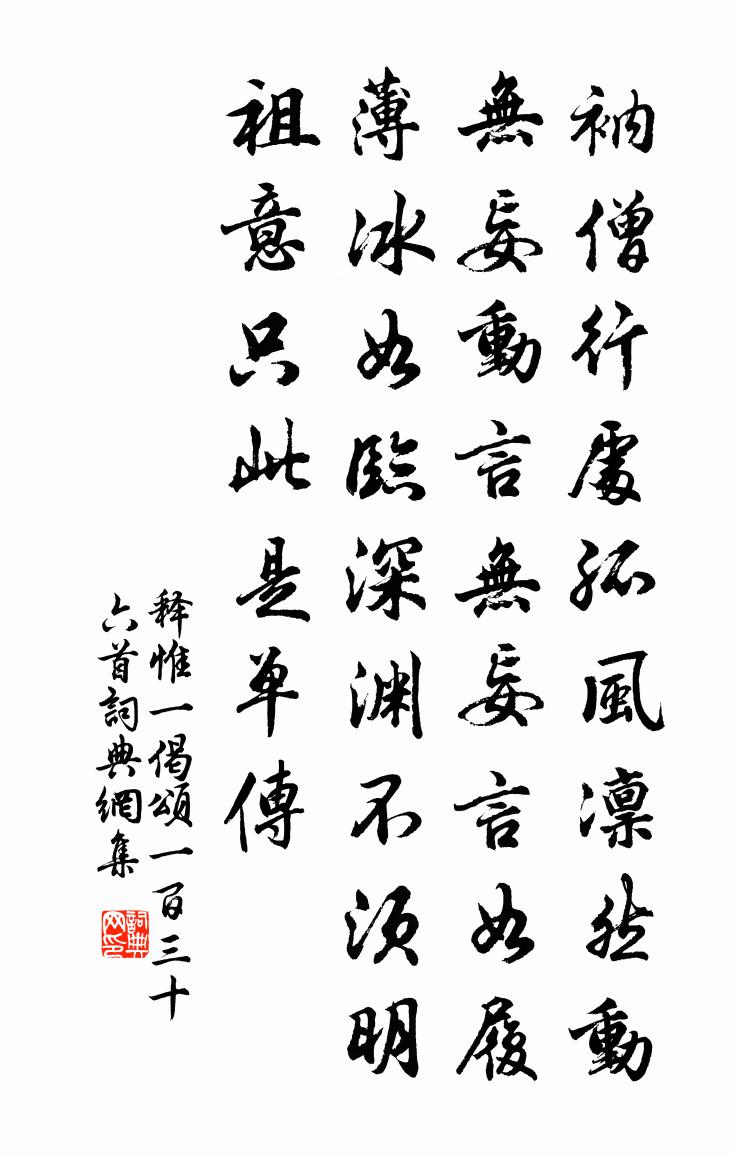 衲僧行處孤風凛然動
無妄動言無妄言如履
薄冰如臨深淵不須明
祖意只此是单傳
释惟一偈頌一百三十
六首詞典網集
詞典
网印